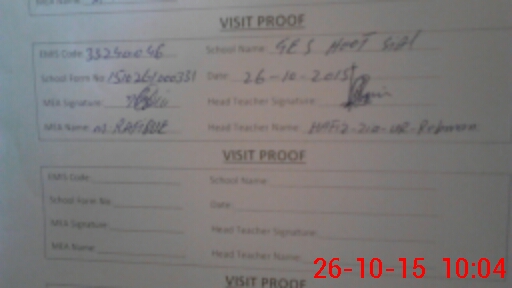 VISIT PROOF
EMIS Code 33240046 School Name GES HOOT SIAL
School Form No Date 26-10-2015
MEA Signature Head Teacher Signature
MEA Name Head Teacher Name HAFIZ-ZIA-UR-Rehman
VISIT PROOF
EMIS Code: School Name:
School Form No: Date:
MEA Signature: Head Teacher Signature:
MEA Name: Head Teacher Name:
VISIT PROOF
26-10-15 10:04